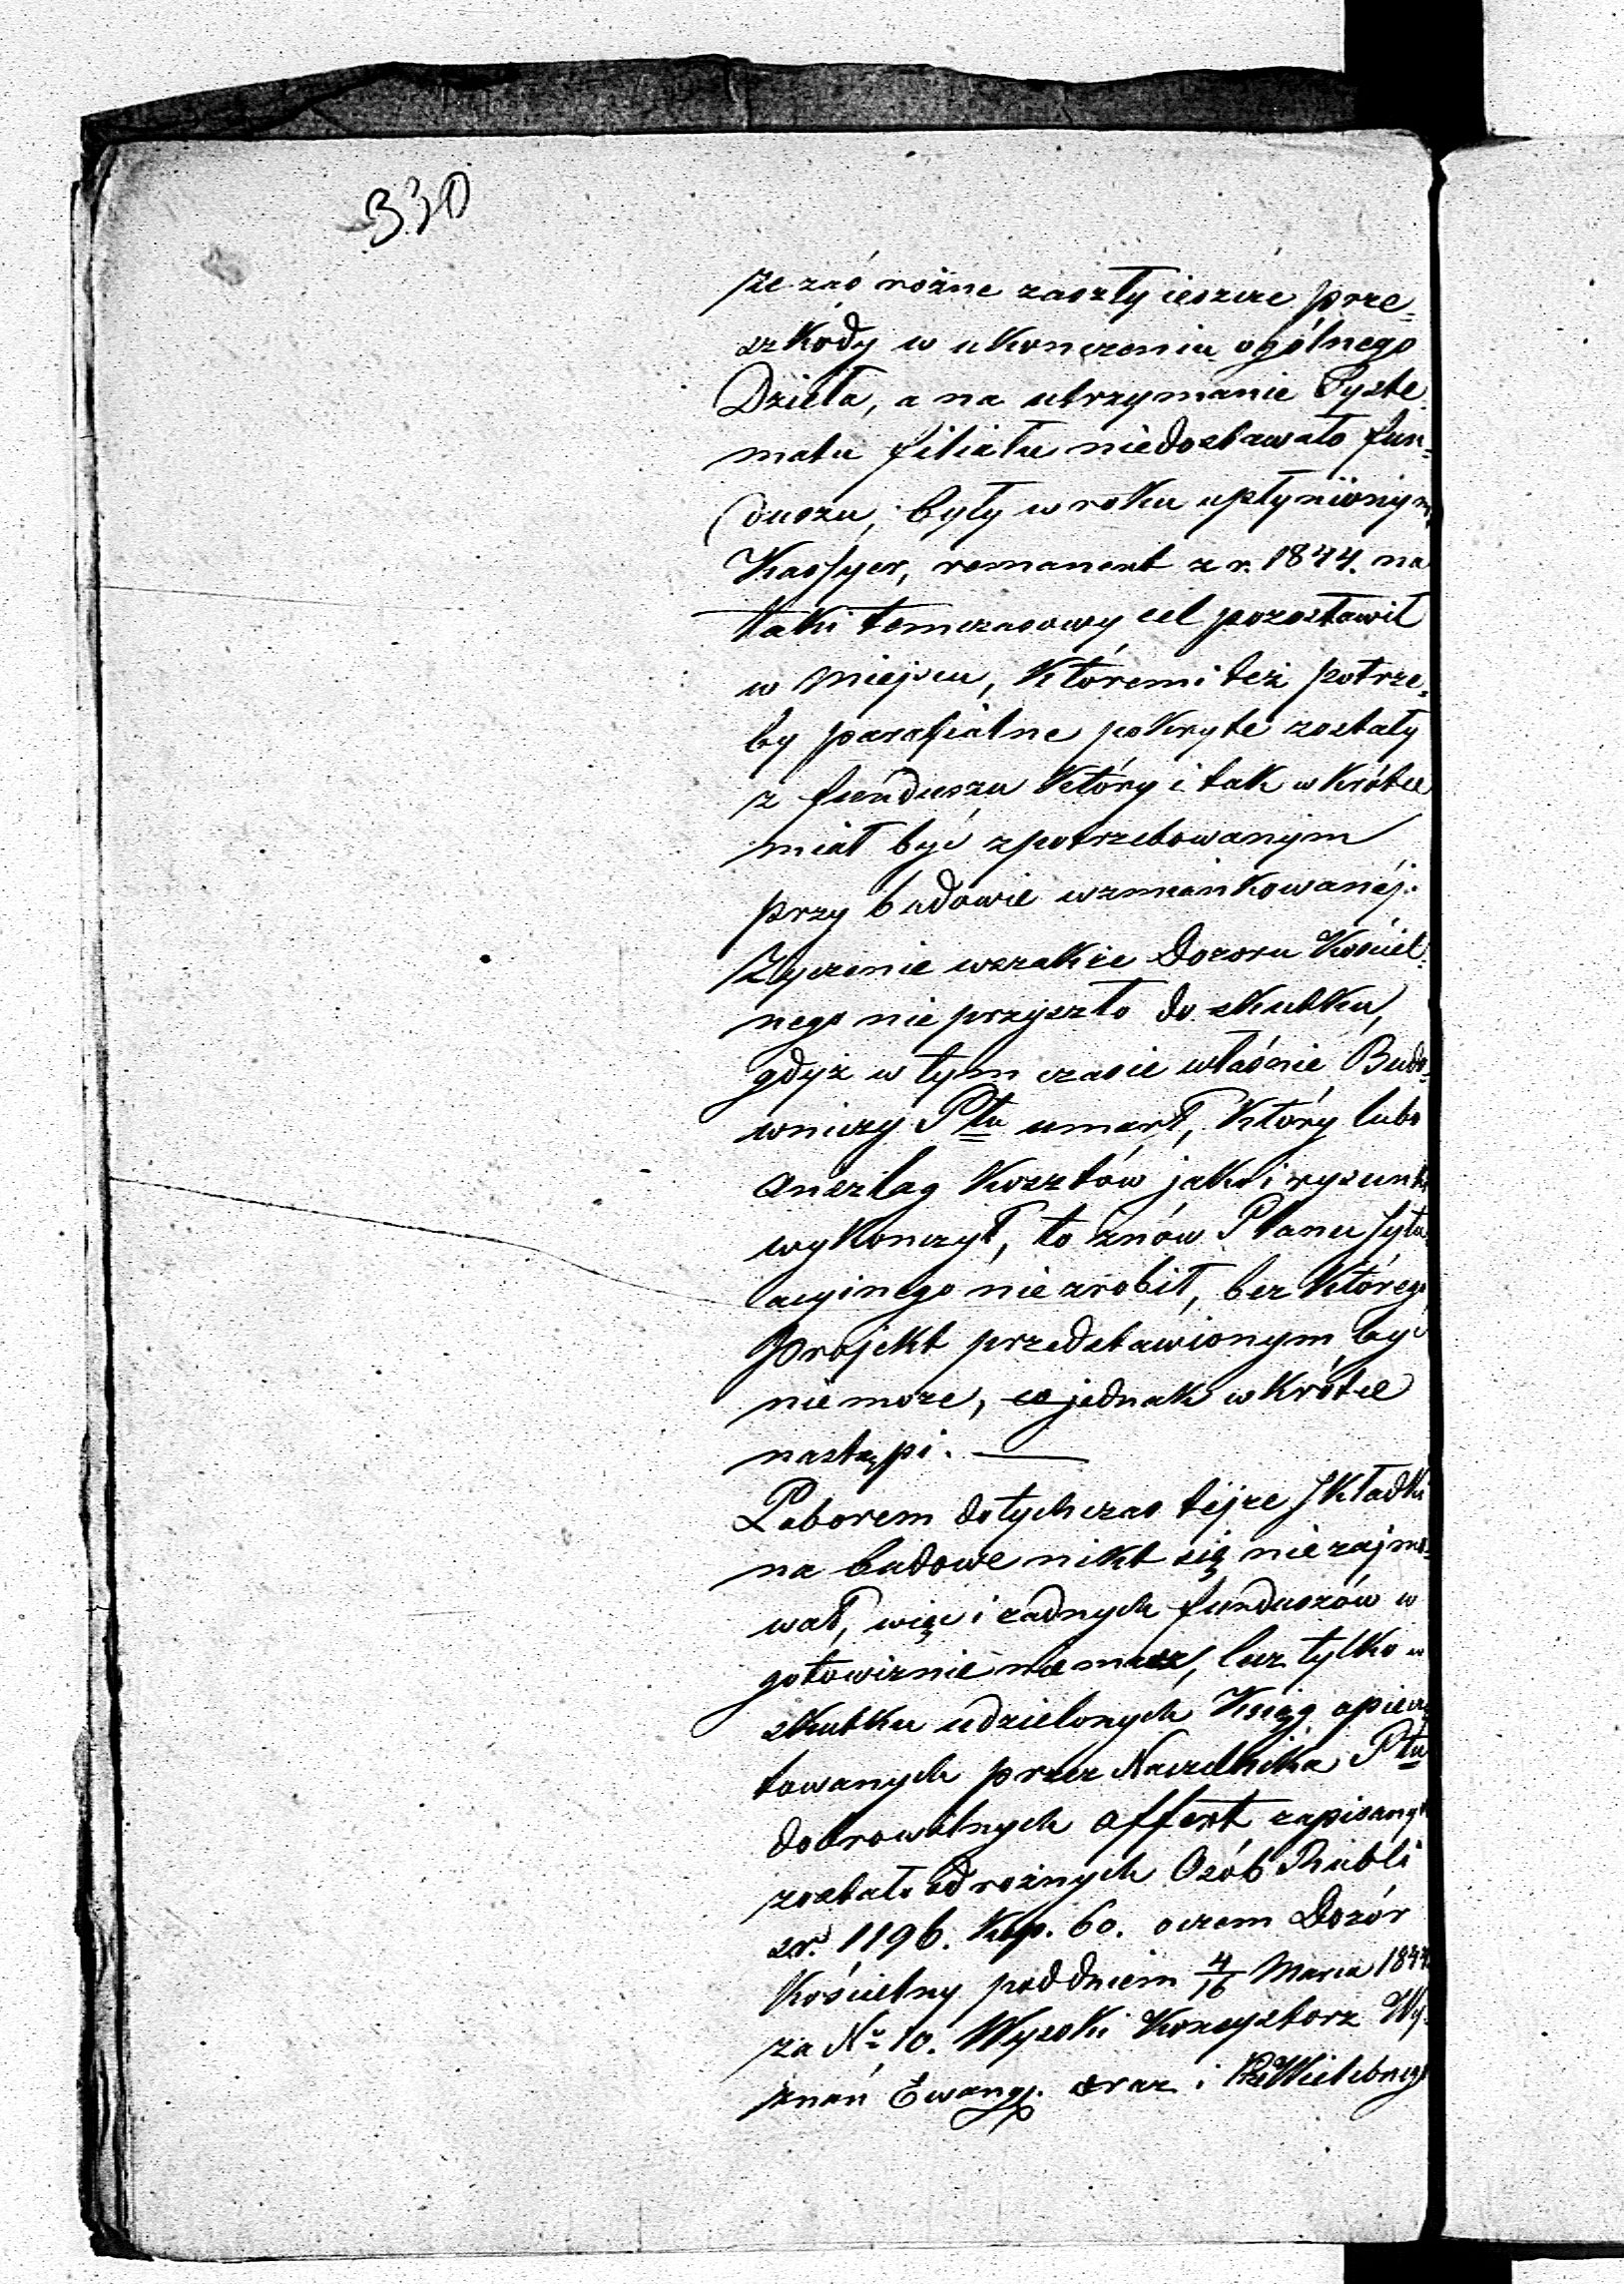 330
że zaś rożne zaszły ieszcze prze=
szkody w ukonczeniu ogólnego
Dzieła, a na utrzymanie Syste=
matu filiału niedostawało fun=
duszu, były w roku upłynionym
Kassyer, remanent z r. 1844. na
taki tymczasowy cel pozostawił
w miejscu, któremi też potrze=
by parafialne pokryte zostały
z funduszu który i tak wkrótce
miał być zpotrzebowanym
przy budowie wzmiankowanéj.
Zyczenie wszakże Dozoru Kościel=
nego nie przyszło do skutku,
gdyż w tym czasie właśnie Budo=
wniczy Ptu umarł, który lubo
anszlag kosztów jako i rysunki
wykonczył, to znów Planu sytu=
acyinego nie zrobił, bez którego
projekt przedstawionym być
nie może, co jednak wkrótce
nastąpi. —
Poborem dotychczas téjże składki
na budowe nikt się nie zajmo=
wał, więc i żadnych funduszów w
gotowiznie nie masz, lecz tylko w
skutku udzielonych Ksiąg opieczę
towanych przez Naczelnika Ptu
dobrowolnych offert zapisanych
zostało od rożnych Osób Rubli
sr. 1196. Kop. 60. oczem Dozór
Kościelny pod dniem 4/16 Marca 1844
za № 10. Wysoki Konsystorz Wy=
znań Ewang. oraz i